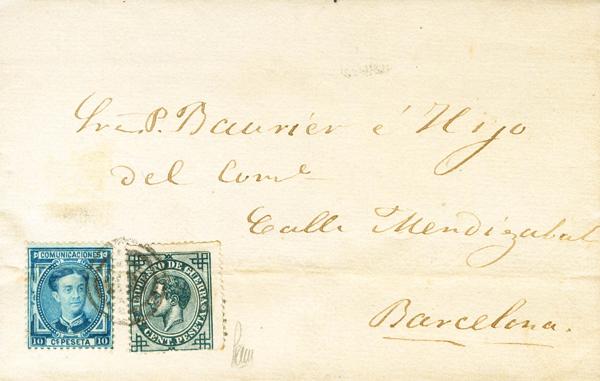 Sr. P. Baurier é Hijo
del Come
Calle Mendizabal
Barcelona.
COMUNICACIONES
10 Cs PESETA 10
IMPUESTO DE GUERRA
5 CENT. PESETA. 5